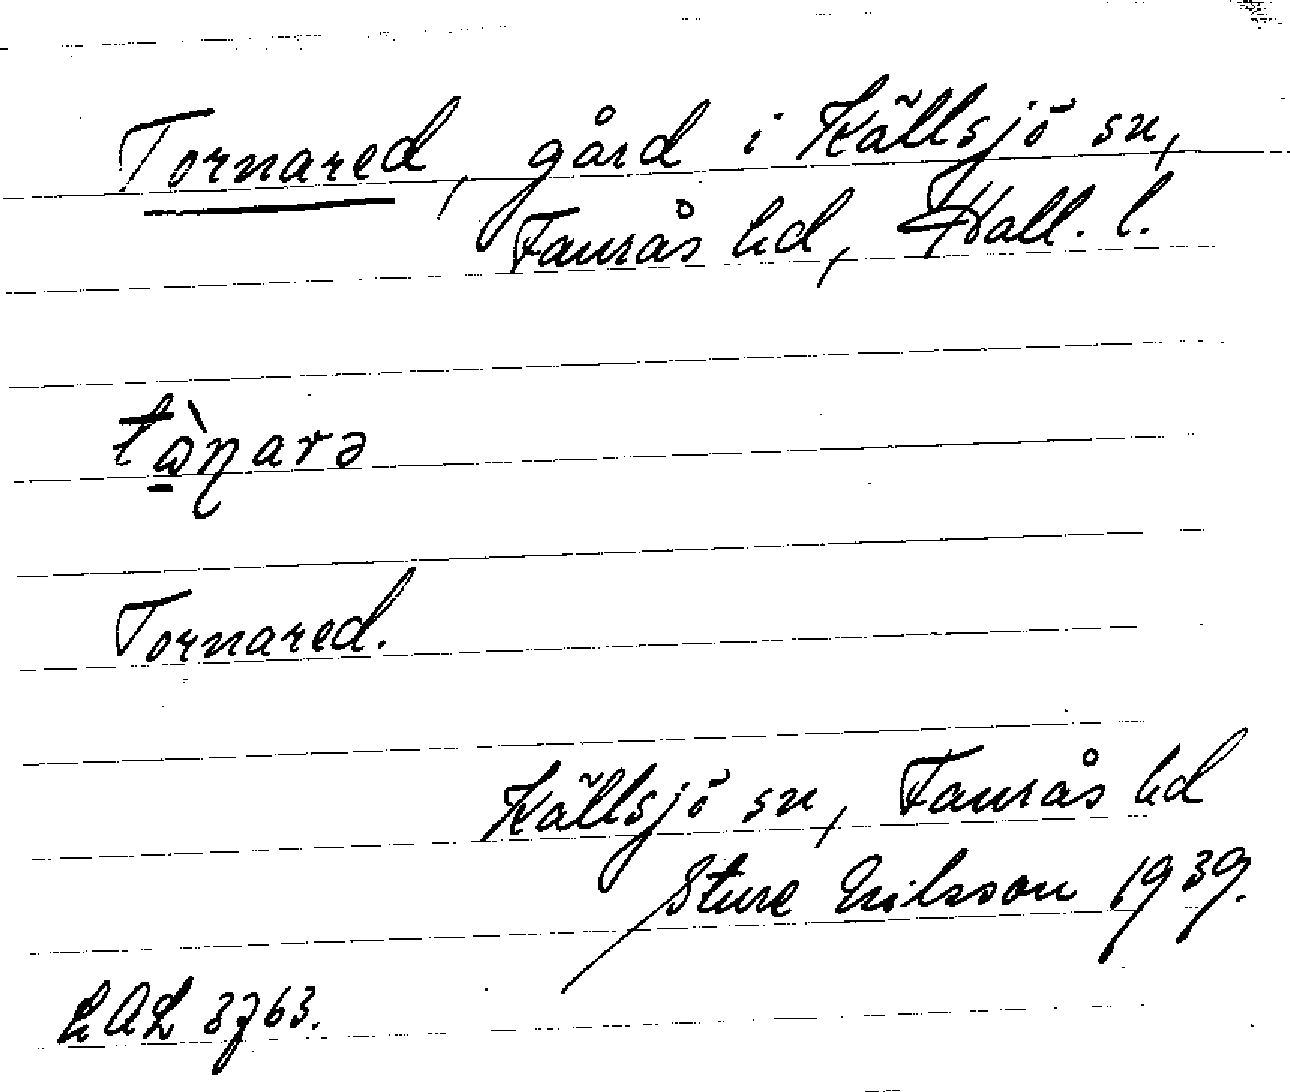 Tornared, gård i Källsjö sn,
Faurås hd, Hall. l.
tὼ̱ꞃarə
Tornared.
Källsjö sn, Faurås hd
Sture Erilsson 1939.
LAL 3763.